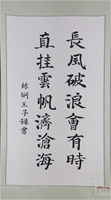 長風破浪會有時
直挂雲帆濟滄海
王子
書